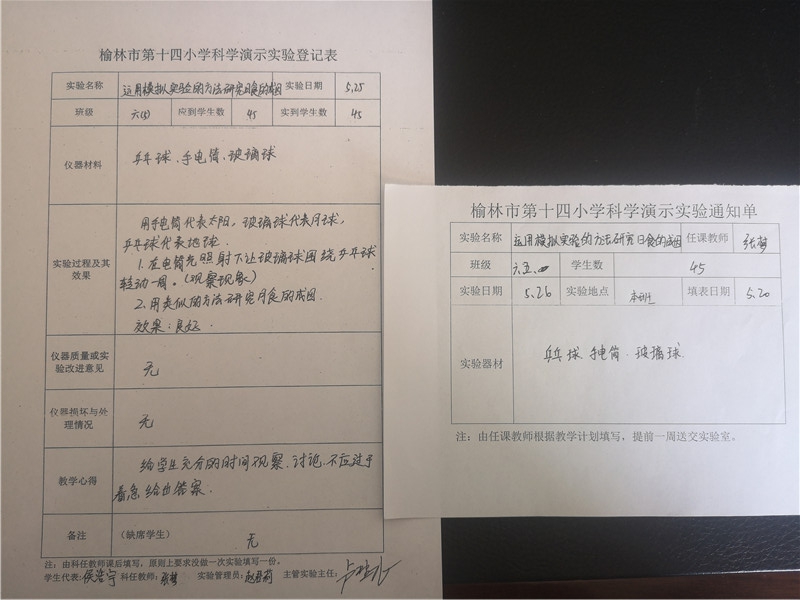 榆林市第十四小学科学演示实验登记表
实验名称 运用模拟实验的方法研究日食的成因 实验日期 5.25
班级 六(5) 应到学生数 45 实到学生数 45
仪器材料 乒乓球、手电筒、玻璃球
实验过程及其效果
用手电筒代表太阳，玻璃球代表月球，
乒乓球代表地球.
1.在电筒光照射下让玻璃球围绕乒乓球
转动一周。(观察现象)
2.用类似的方法研究月食的成因.
效果：良好.
仪器质量或实验改进意见 无
仪器损坏与处理情况 无
教学心得
给学生充分的时间观察、讨论、不应过于
着急给出答案.
备注 (缺席学生) 无
注：由科任教师课后填写，原则上要求没做一次实验填写一份，
学生代表：侯浩宇 科任教师：张梦 实验管理员： 主管实验主任：
榆林市第十四小学科学演示实验通知单
实验名称 运用模拟实验的方法研究日食的成因 任课教师 张梦
班级 六五 学生数 45
实验日期 5.26 实验地点 本班 填表日期 5.20
实验器材 乒乓球 手电筒 玻璃球.
注：由任课教师根据教学计划填写，提前一周送交实验室。